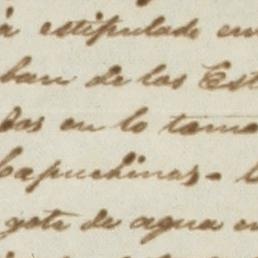 a estipulado en
ban de las Est
das en lo toma
Capuchinas-
gota de agua en